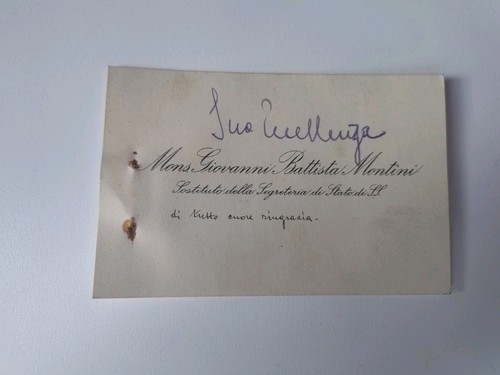 Sua Eccellenza
Mons. Giovanni Battista Montini
Sostituto della Segreteria di Stato di S.S.
di tutto cuore ringrazia.